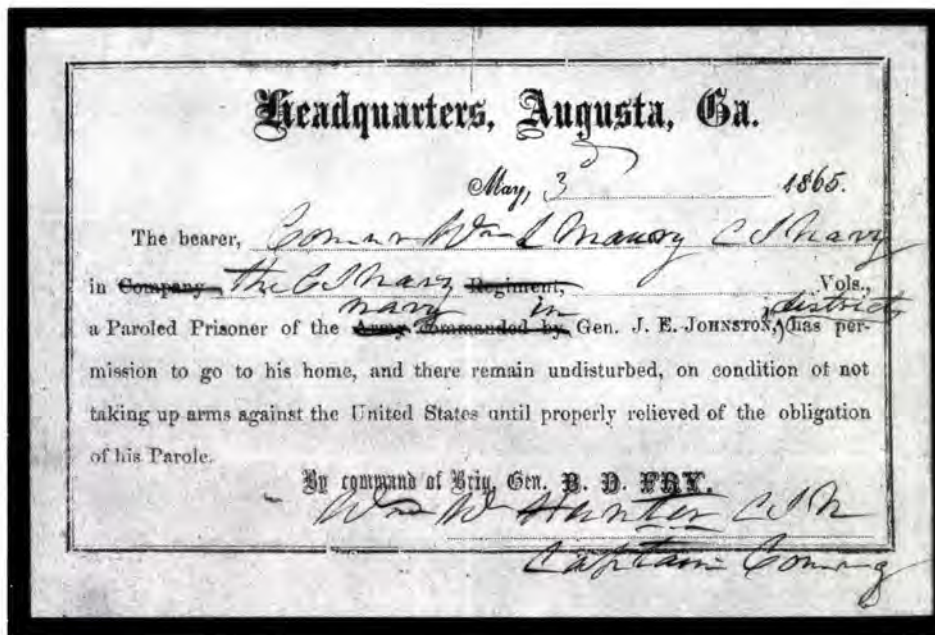 Headquarters, Augusta, Ga.
May, 3 1865.
The bearer, Comm Wm L Maury C S Navy
in Company the C S Navy Regiment, Vols.,
navy in districts
a Paroled Prisoner of the Army Commanded by Gen. J. E. JOHNSTON, has per-
mission to go to his home, and there remain undisturbed, on condition of not
taking up arms against the United States until properly relieved of the obligation
of his Parole.
By command of Brig. Gen. B. D. FRY.
Wm W Hunter C S N
Captain Comdg